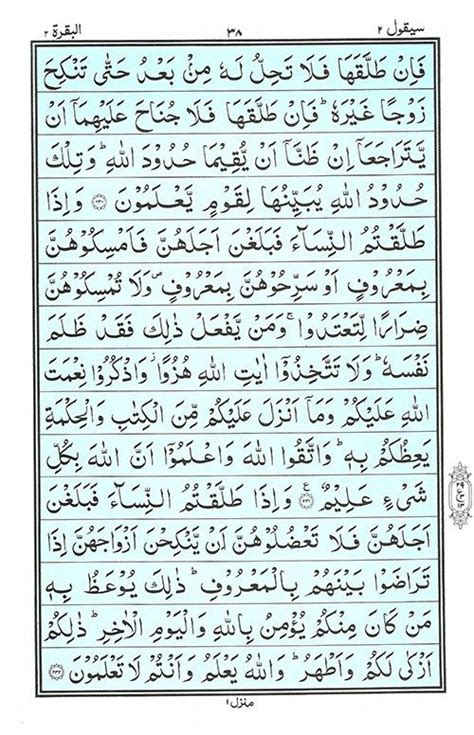 سيقول ٢ ٣٨ البقرة ٢
فَاِنْ طَلَّقَهَا فَلَا تَحِلُّ لَهٗ مِنْۢ بَعْدُ حَتّٰى تَنْكِحَ
زَوْجًا غَيْرَهٗ ؕ فَاِنْ طَلَّقَهَا فَلَا جُنَاحَ عَلَيْهِمَاۤ اَنْ
يَّتَرَاجَعَاۤ اِنْ ظَنَّاۤ اَنْ يُّقِيْمَا حُدُوْدَ اللّٰهِ ؕ وَتِلْكَ
حُدُوْدُ اللّٰهِ يُبَيِّنُهَا لِقَوْمٍ يَّعْلَمُوْنَ ﴿٢٣٠﴾ وَاِذَا
طَلَّقْتُمُ النِّسَآءَ فَبَلَغْنَ اَجَلَهُنَّ فَاَمْسِكُوْهُنَّ
بِمَعْرُوْفٍ اَوْ سَرِّحُوْهُنَّ بِمَعْرُوْفٍ ۪ وَّلَا تُمْسِكُوْهُنَّ
ضِرَارًا لِّتَعْتَدُوْا ۚ وَمَنْ يَّفْعَلْ ذٰلِكَ فَقَدْ ظَلَمَ
نَفْسَهٗ ؕ وَلَا تَتَّخِذُوْۤا اٰيٰتِ اللّٰهِ هُزُوًا ؗ وَّاذْكُرُوْا نِعْمَتَ
اللّٰهِ عَلَيْكُمْ وَمَاۤ اَنْزَلَ عَلَيْكُمْ مِّنَ الْكِتٰبِ وَالْحِكْمَةِ
يَعِظُكُمْ بِهٖ ؕ وَاتَّقُوا اللّٰهَ وَاعْلَمُوْۤا اَنَّ اللّٰهَ بِكُلِّ
شَيْءٍ عَلِيْمٌ ﴿٢٣١﴾ ع وَاِذَا طَلَّقْتُمُ النِّسَآءَ فَبَلَغْنَ
اَجَلَهُنَّ فَلَا تَعْضُلُوْهُنَّ اَنْ يَّنْكِحْنَ اَزْوَاجَهُنَّ اِذَا
تَرَاضَوْا بَيْنَهُمْ بِالْمَعْرُوْفِ ؕ ذٰلِكَ يُوْعَظُ بِهٖ
مَنْ كَانَ مِنْكُمْ يُؤْمِنُ بِاللّٰهِ وَالْيَوْمِ الْاٰخِرِ ؕ ذٰلِكُمْ
اَزْكٰى لَكُمْ وَاَطْهَرُ ؕ وَاللّٰهُ يَعْلَمُ وَاَنْتُمْ لَا تَعْلَمُوْنَ ﴿٢٣٢﴾
منزل ١